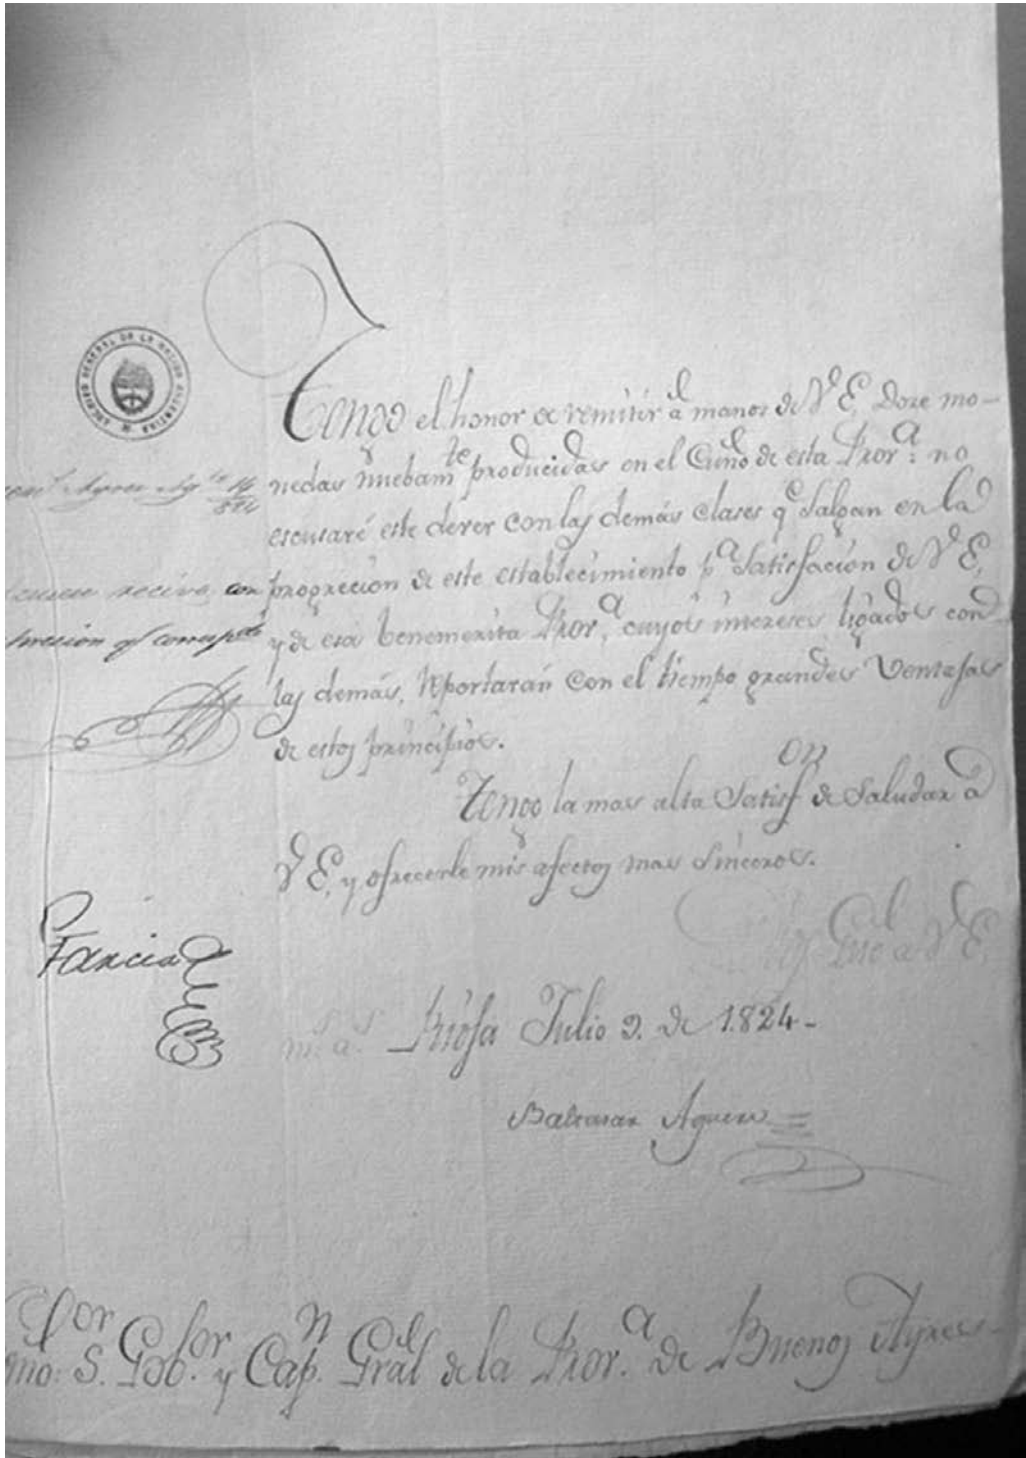 ARCHIVO GENERAL DE LA NACION ARGENTINA
Tengo el honor de remitir á manos de V. E. Doze mo-
nedas nuebamte producidas en el Cuño de esta Prova: no
escusaré este dever con las demás clases qe Salgan en la
progrecion de este establecimiento pa Satisfacion de V. E,
y de esa benemerita Prova, cuyos intereses ligados con
las demás, reportarán con el tiempo grandes Ventajas
de estos principios.
Tengo la mas alta Satisfon de Saludar a
V. E, y ofrecerle mis afectos mas Sinceros.
Ayres Agto 14
824
recivo con
corrspte
Garcia
V. E.
m. a. Rioja Julio 9. de 1.824-
Baltasar Aguero
mo: Sor. Gobor. y Capn. Gral de la Prova. de Buenos Ayres-